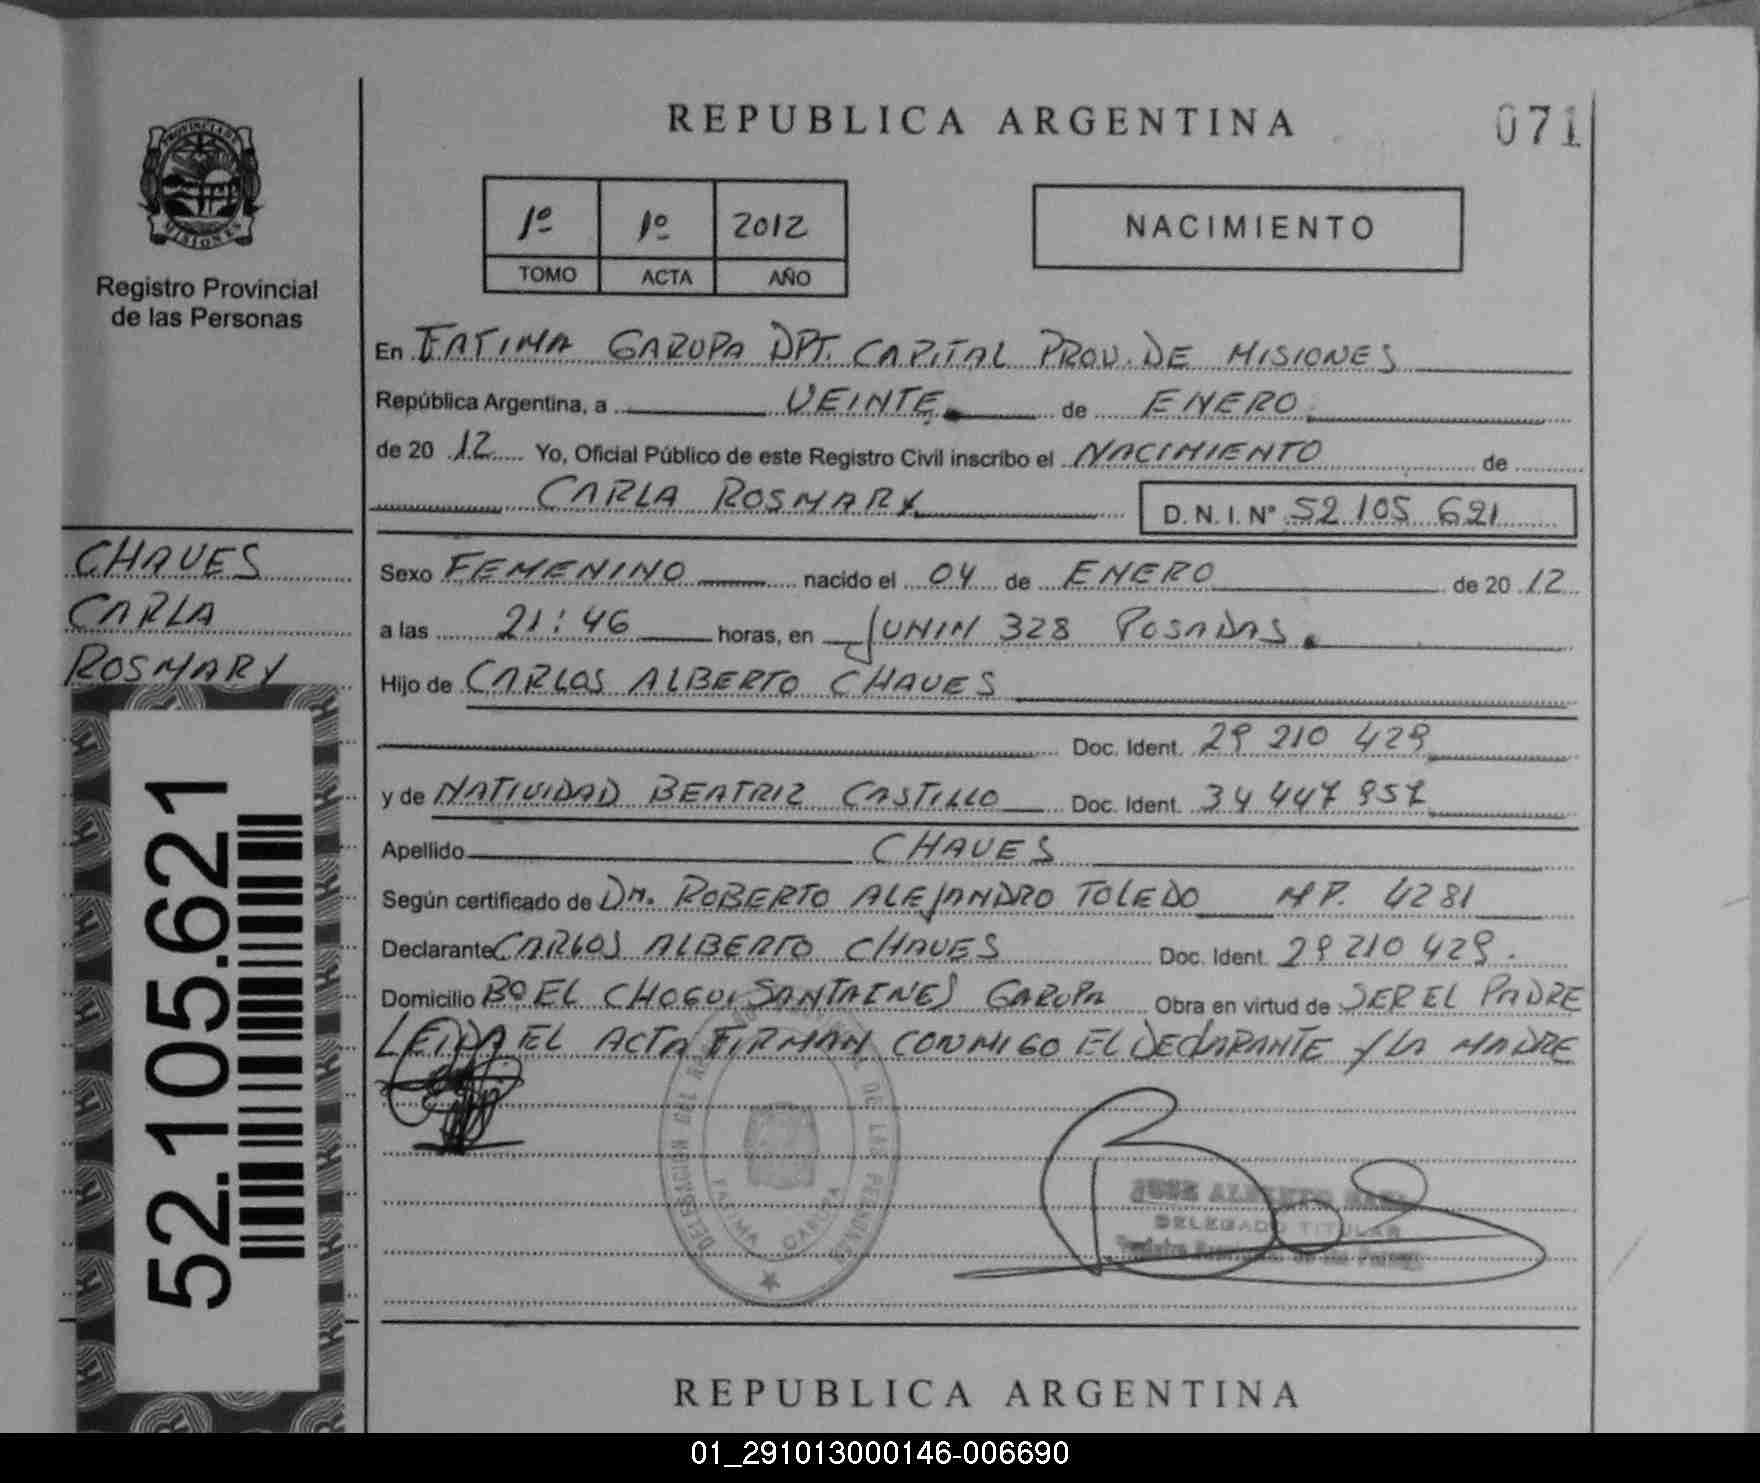 REPUBLICA ARGENTINA
071
PROVINCIA DE
MISIONES
Registro Provincial
de las Personas
1º 1º 2012
TOMO ACTA AÑO
NACIMIENTO
En FATIMA GARUPA DPT. CAPITAL PROV. DE MISIONES
República Argentina, a VEINTE de ENERO
de 20 12 Yo, Oficial Público de este Registro Civil inscribo el NACIMIENTO de
CARLA ROSMARY D.N.I. Nº 52 105 621
CHAVES
CARLA
ROSMARY
52.105.621
Sexo FEMENINO nacido el 04 de ENERO de 20 12
a las 21:46 horas, en JUNIN 328 POSADAS.
Hijo de CARLOS ALBERTO CHAVES
Doc. Ident. 29 210 429
y de NATIVIDAD BEATRIZ CASTILLO Doc. Ident. 34 447
Apellido CHAVES
Según certificado de Dr. ROBERTO ALEJANDRO TOLEDO MP. 4281
Declarante CARLOS ALBERTO CHAVES Doc. Ident. 29 210 429.
Domicilio Bº EL CHOGUI SANTA INES GARUPA Obra en virtud de SER EL PADRE
LEIDA EL ACTA FIRMAN CONMIGO EL DECLARANTE Y LA MADRE
DE LAS PERSONAS
FATIMA GARUPA
JOSE ALBERTO
DELEGADO TITULAR
REPUBLICA ARGENTINA
01_291013000146-006690